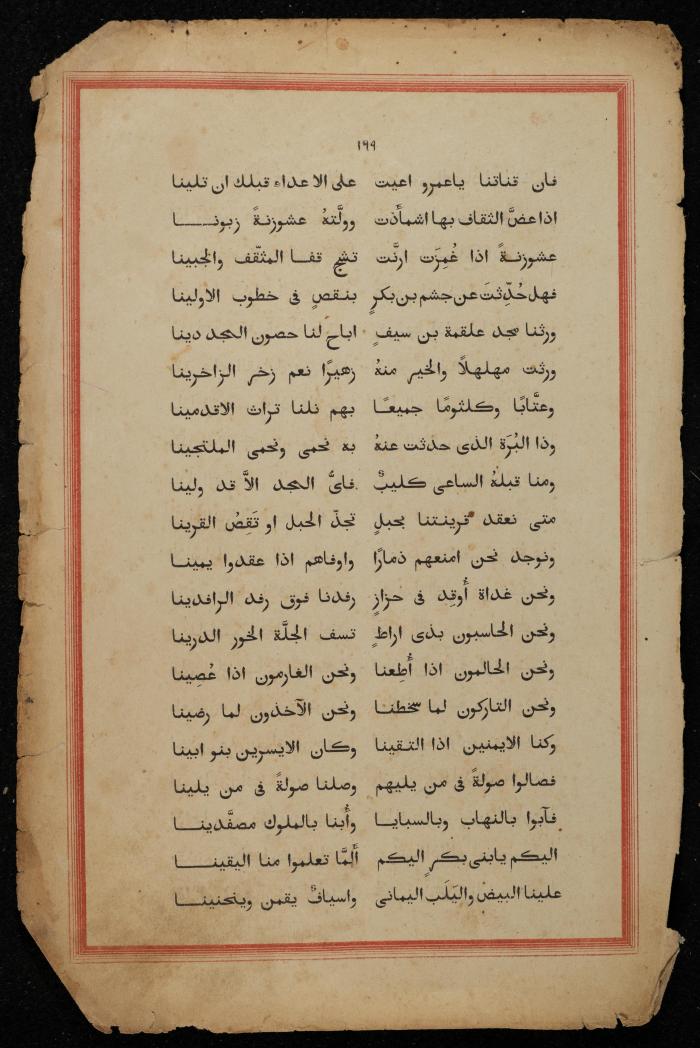 ١٩٩
فان قناتنا ياعمرو اعيت على الاعداء قبلك ان تلينا
اذا عضَّ الثقاف بها اشمأَذت وولَّتهُ عشوزنةً زبونـــا
عشوزنةً اذا غُمِزَت ارنَّت تشج قفـا المثقّف والجبينا
فهل حُدِّثتَ عن جشم بن بكرٍ بنقصٍ فى خطوب الاولينا
ورثنا مجد علقمة بن سيفٍ اباح لنا حصون المجد دينا
ورثت مهلهلاً والخير منهُ زهيرًا نعم زخر الزاخرينا
وعتَّابًا وكلثومًا جميعًـا بهم نلنا تراث الاقدمينا
وذا البُرَة الذى حدثت عنهُ به نحمى ونحمى الملتجينا
ومنا قبلهُ الساعى كليبٌ فاىُّ المجد الاَّ قد ولينا
متى نعقد قرينتنا بحبلٍ تجذّ الحبل او تَقِصُ القرينا
ونوجد نحن امنعهم ذمارًا واوفاهم اذا عقدوا يمينـا
ونحن غداة أُوقِد فى حزازٍ رفدنا فوق رفد الرافدينا
ونحن الحاسبون بذى اراطٍ تسف الجلَّة الخور الدرينا
ونحن الحالمون اذا أُطِعنا ونحن الغارمون اذا عُصِينا
ونحن التاركون لما سخطنـا ونحن الآخذون لما رضينا
وكنا الايمنين اذا التـقينا وكان الايسرين بنو ابينا
فصالوا صولةً فى من يليهم وصلنا صولةً فى من يلينا
فآبوا بالنهاب وبالسبايـا وأُبنا بالملوك مصفَّدينـــا
اليكم يابنى بكرٍ اليكم أَلمَّا تعلموا منا اليقينـــا
علينا البيض واليَلَب اليمانى واسيافٌ يقمن وينحنينــا